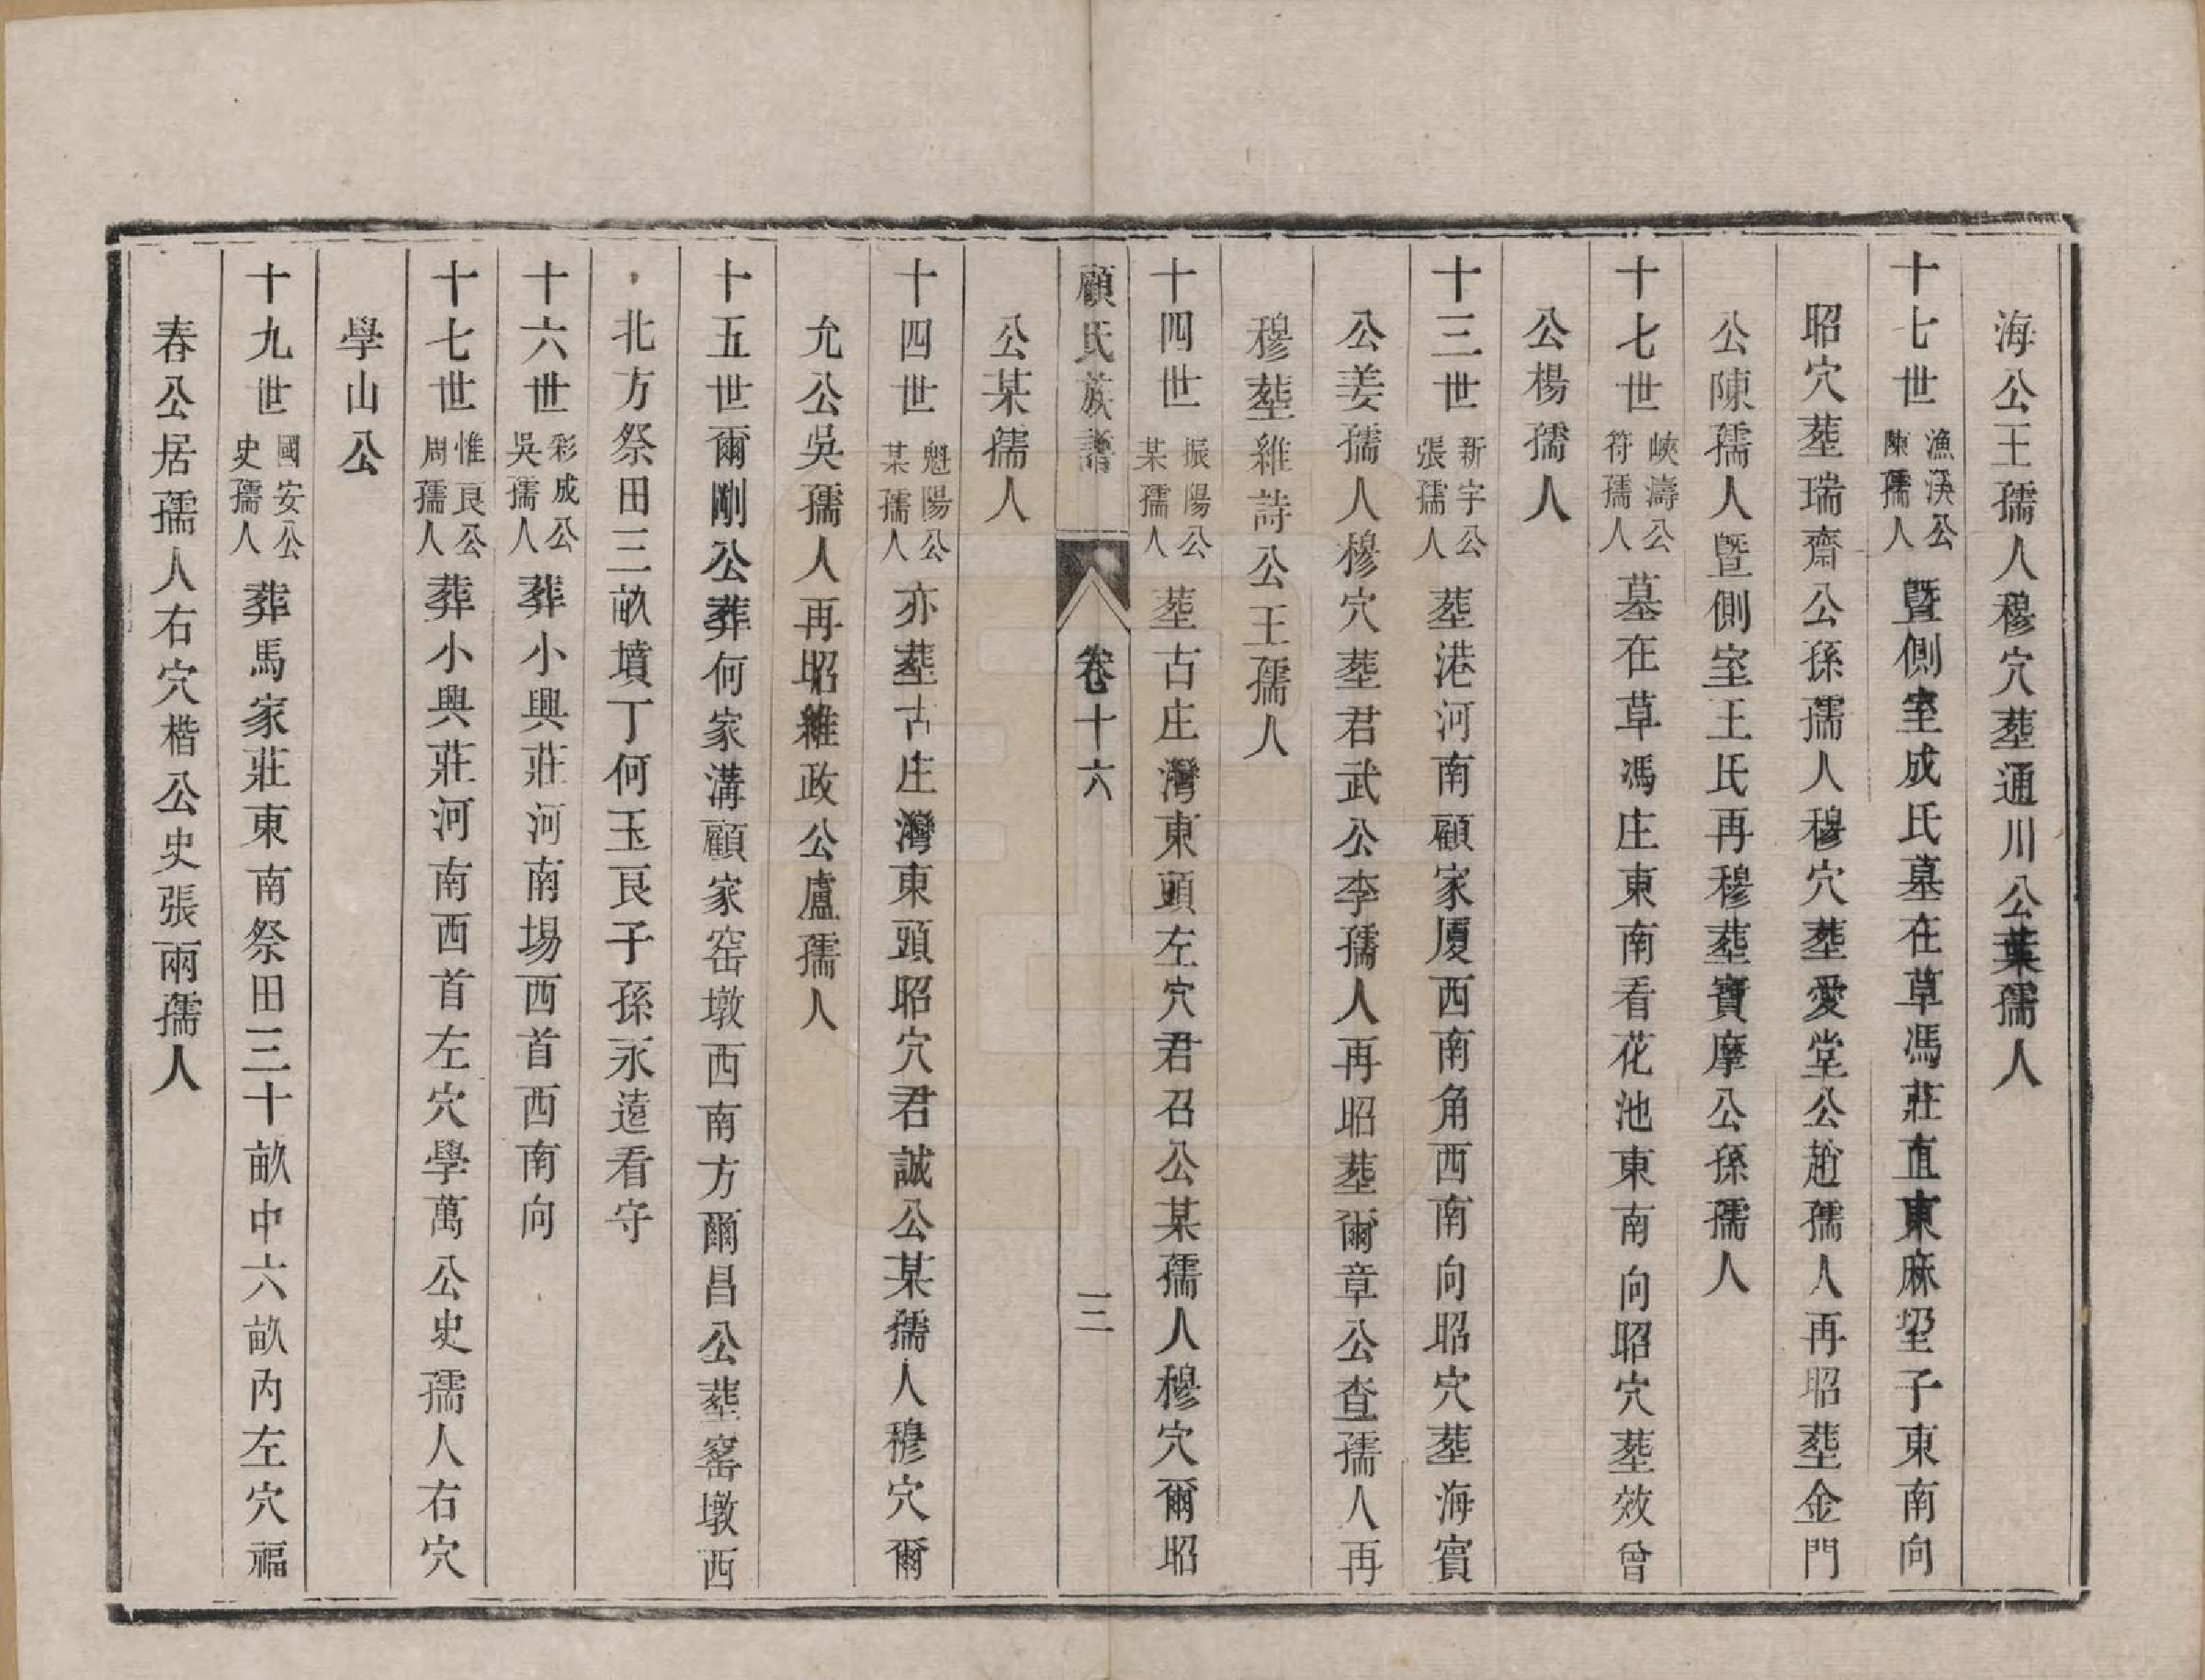 海公王孺人穆穴塟通川公葉孺人
十七世漁溪公陳孺人暨側室成氏墓在草馮莊直東麻垩子東南向
昭穴塟瑞齋公孫孺人穆穴塟愛堂公趙孺人再昭塟金門
公陳孺人暨側室王氏再穆塟寶摩公孫孺人
十七世峽濤公符孺人墓在草馮庄東南看花池東南向昭穴塟效曾
公楊孺人
十三世新宇公張孺人塟港河南顧家厦西南角西南向昭穴塟海賓
公姜孺人穆穴塟君武公李孺人再昭塟爾章公查孺人再
穆塟維詩公王孺人
十四世振陽公某孺人塟古庄灣東頭左穴君召公某孺人穆穴爾昭
顧氏族譜 卷十六 三
公某孺人
十四世魁陽公某孺人亦塟古庄灣東頭昭穴君誠公某孺人穆穴爾
允公吳孺人再昭維政公盧孺人
十五世爾剛公葬何家溝顧家窑墩西南方爾昌公塟窰墩西
北方祭田三畝墳丁何玉艮子孫永遠看守
十六世彩成公吳孺人葬小興莊河南場西首西南向
十七世惟良公周孺人葬小興莊河南西首左穴學萬公史孺人右穴
學山公
十九世國安公史孺人葬馬家莊東南祭田三十畝中六畝內左穴福
春公居孺人右穴楷公史張兩孺人